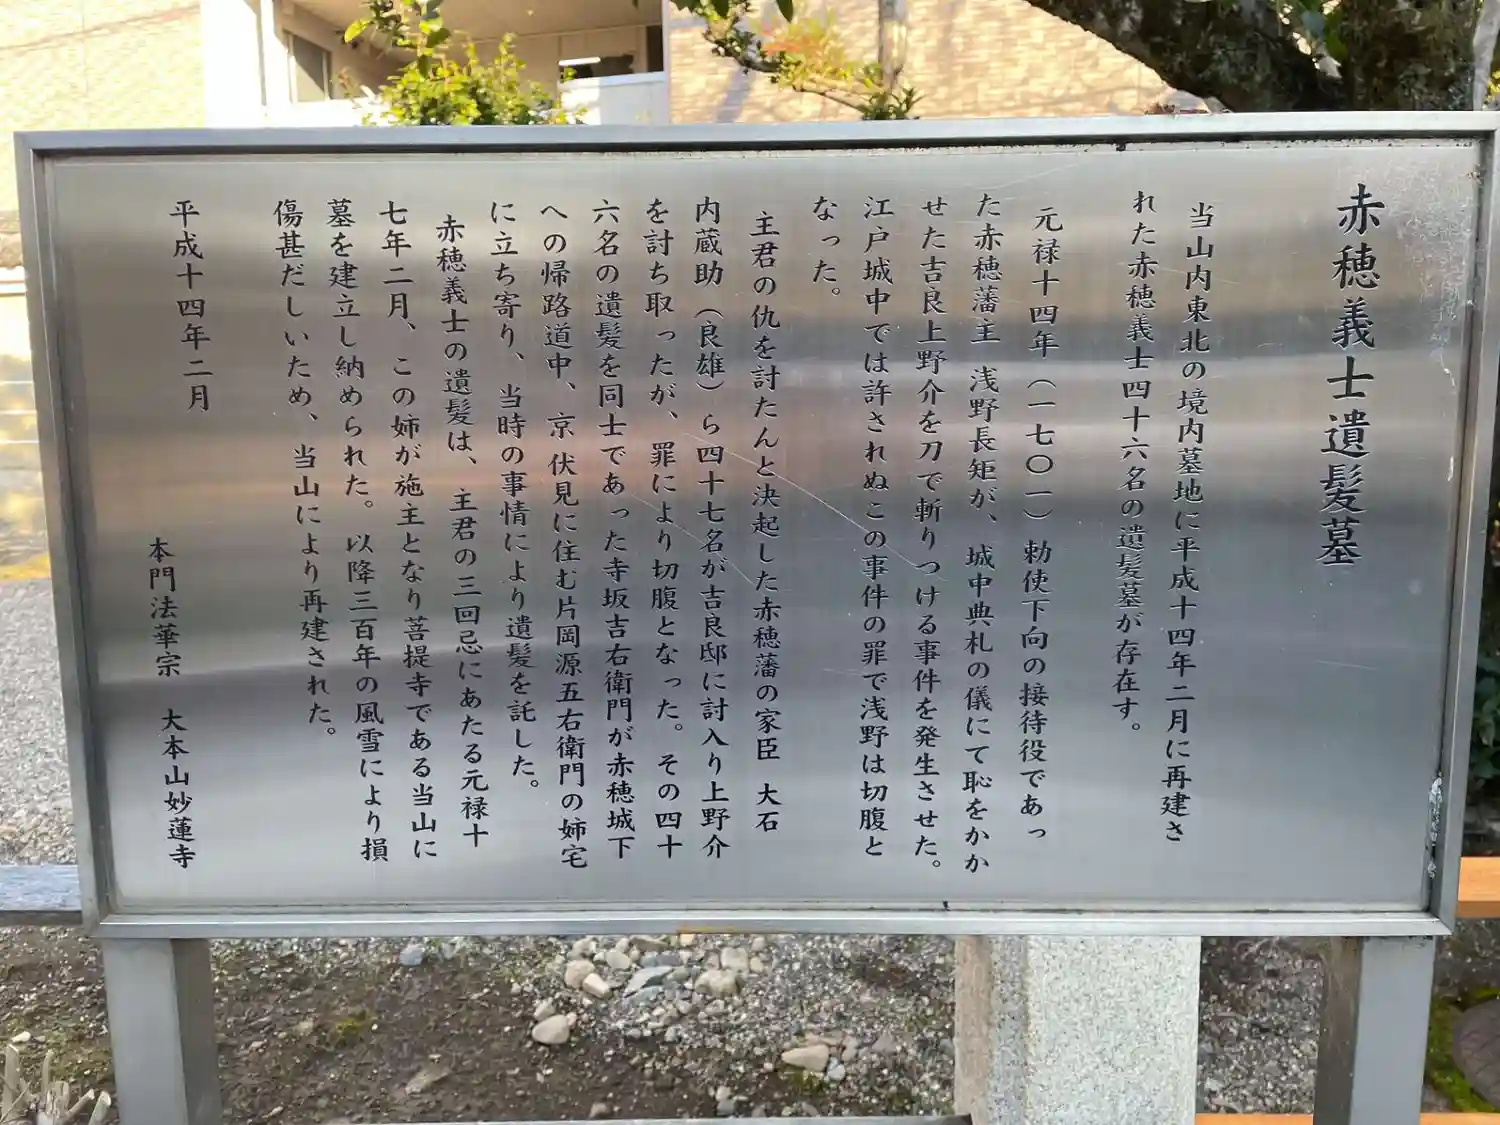 赤穂義士遺髪墓
当山内東北の境内墓地に平成十四年二月に再建さ
れた赤穂義士四十六名の遺髪墓が存在す。
元禄十四年（一七〇一）勅使下向の接待役であっ
た赤穂藩主 浅野長矩が、城中典札の儀にて恥をかか
せた吉良上野介を刀で斬りつける事件を発生させた。
江戸城中では許されぬこの事件の罪で浅野は切腹と
なった。
主君の仇を討たんと決起した赤穂藩の家臣 大石
内蔵助（良雄）ら四十七名が吉良邸に討入り上野介
を討ち取ったが、罪により切腹となった。その四十
六名の遺髪を同士であった寺坂吉右衛門が赤穂城下
への帰路道中、京 伏見に住む片岡源五右衛門の姉宅
に立ち寄り、当時の事情により遺髪を託した。
赤穂義士の遺髪は、主君の三回忌にあたる元禄十
七年二月、この姉が施主となり菩提寺である当山に
墓を建立し納められた。以降三百年の風雪により損
傷甚だしいため、当山により再建された。
平成十四年二月
本門法華宗 大本山妙蓮寺